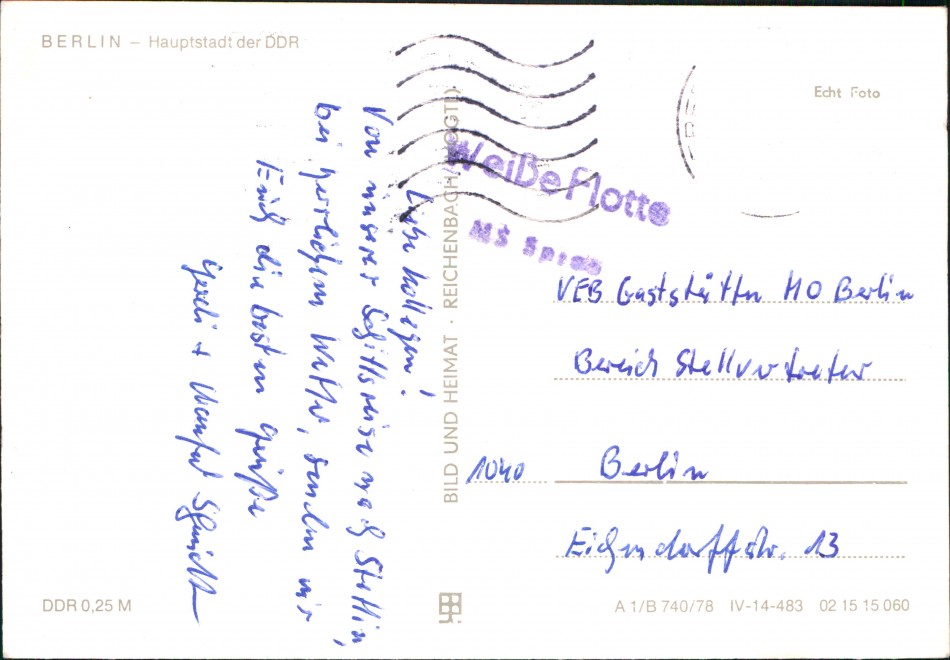 BERLIN – Hauptstadt der DDR
Echt Foto
Weiße Flotte
MS Spree
Liebe Kollegen!
Von unserer Schiffsreise nach Stettin,
bei herrlichem Wetter, senden wir
Euch die besten Grüße
+ Manfred Schmidt
BILD UND HEIMAT · REICHENBACH (VOGTL)
VEB Gaststätten HO Berlin
Bereich Stellvertreter
1040 Berlin
Eichendorffstr. 13
DDR 0,25 M
A 1/B 740/78 IV-14-483 02 15 15 060